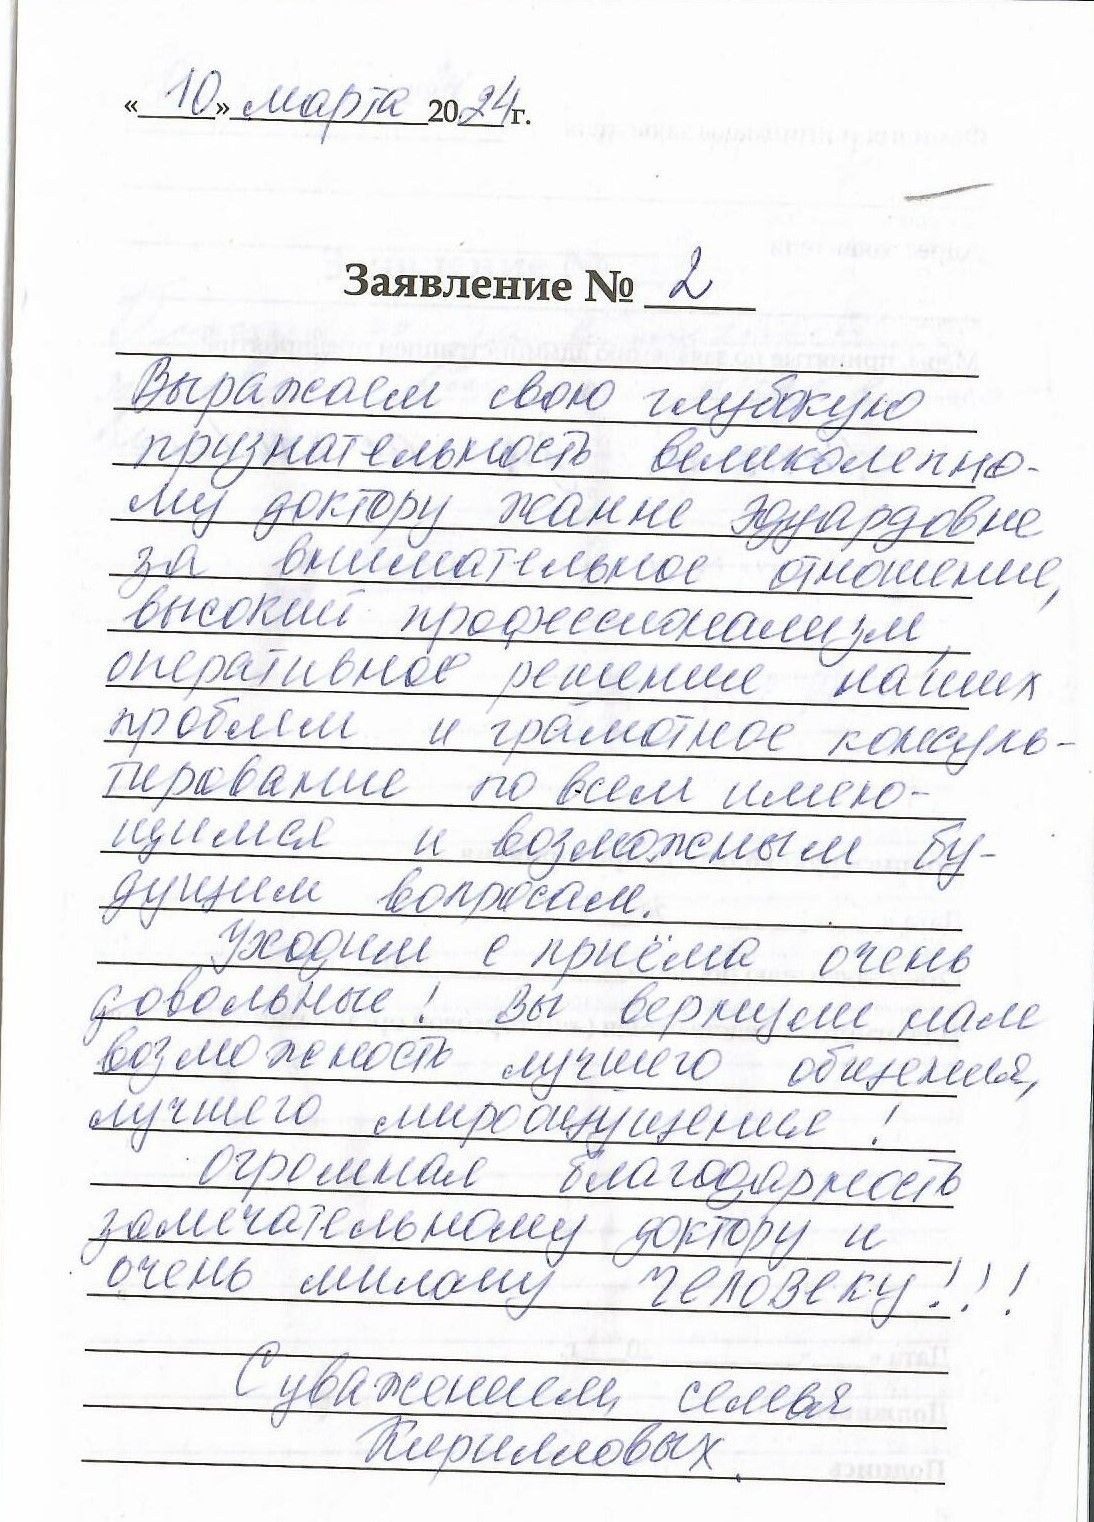 «10» марта 2024 г.
Заявление № 2
Выражаем свою глубокую
признательность великолепно-
му доктору Жанне Эдуардовне
за внимательное отношение,
высокий профессионализм,
оперативное решение наших
проблем и грамотное консуль-
тирование по всем имею-
щимся и возможным бу-
дущим вопросам.
Уходим с приёма очень
довольные! Вы вернули нам
возможность лучшего общения,
лучшего мироощущения!
Огромная благодарность
замечательному доктору и
очень милому человеку!!!
С уважением, семья
Кирилловых.